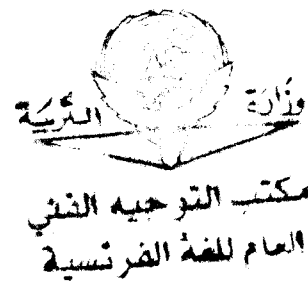 وزارة التربية
مكتب التوجيه الفني
العام للغة الفرنسية